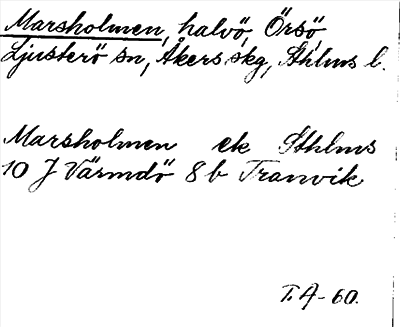 Marsholmen, halvö, Örsö,
Ljusterö sn, Åkers skg, Sthlms l.
Marsholmen ek Sthlms
10 J Värmdö 8 b Tranvik
T.A-60.